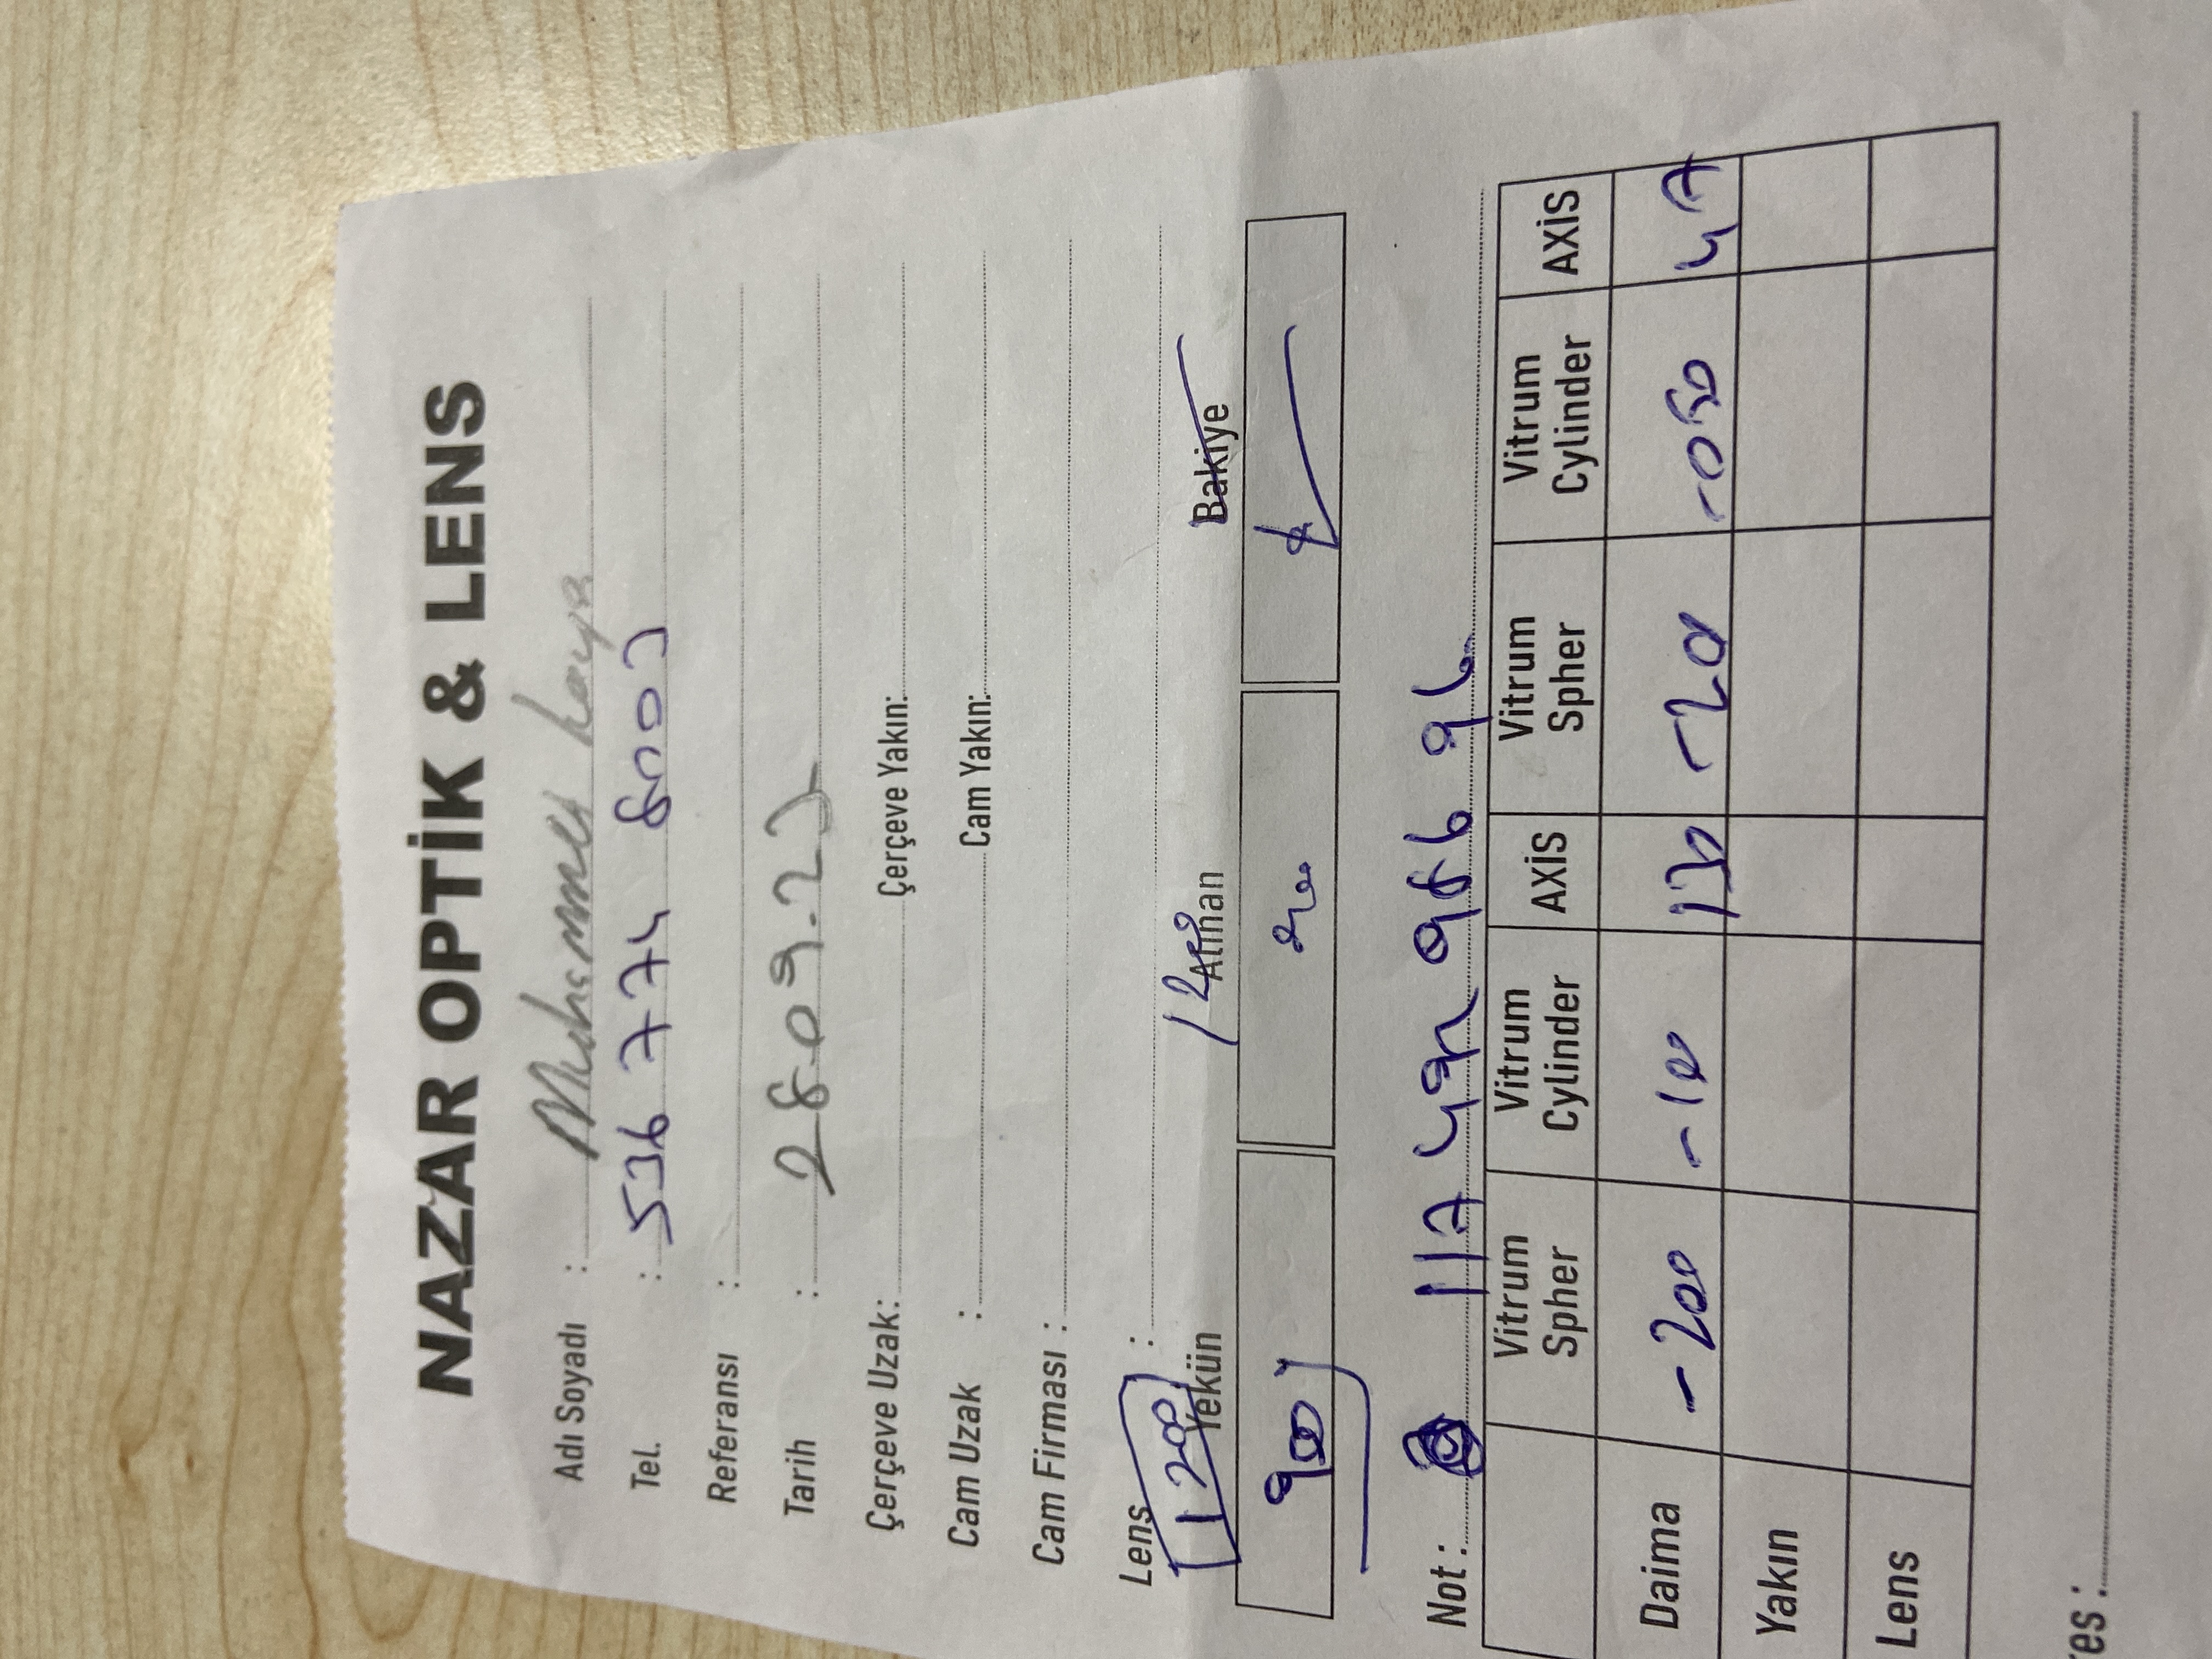 NAZAR OPTİK & LENS
Adı Soyadı : Muhammed Kaya
Tel. : 536 774 8003
Referansı :
Tarih : 28.09.23
Çerçeve Uzak: Çerçeve Yakın:
Cam Uzak : Cam Yakın:
Cam Firması :
Lens :
1200 1200
Yekün Alınan Bakiye
900
Not : 117 492 986 96
Vitrum Spher Vitrum Cylinder AXİS Vitrum Spher Vitrum Cylinder AXİS
Daima -200 -100 130 -200 -050 47
Yakın
Lens
res :